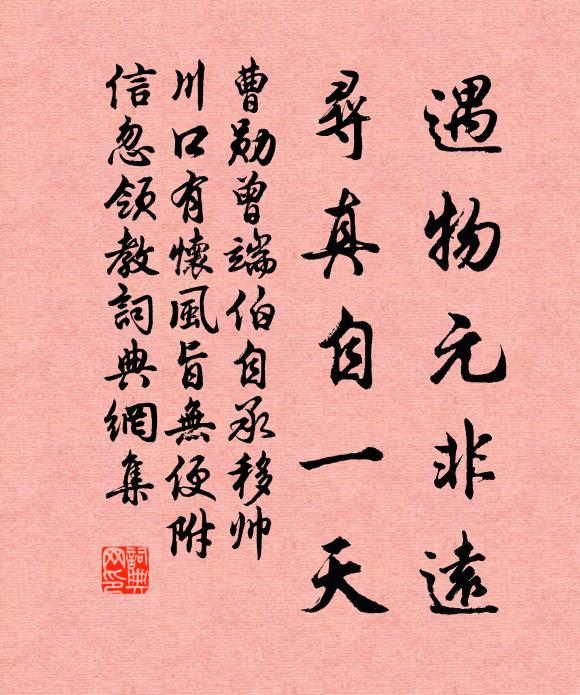 遇物元非遠
尋真自一天
曹勛曾端伯自承移帅
川口有懷風旨無便附
信忽領教詞典網集
詞典网印